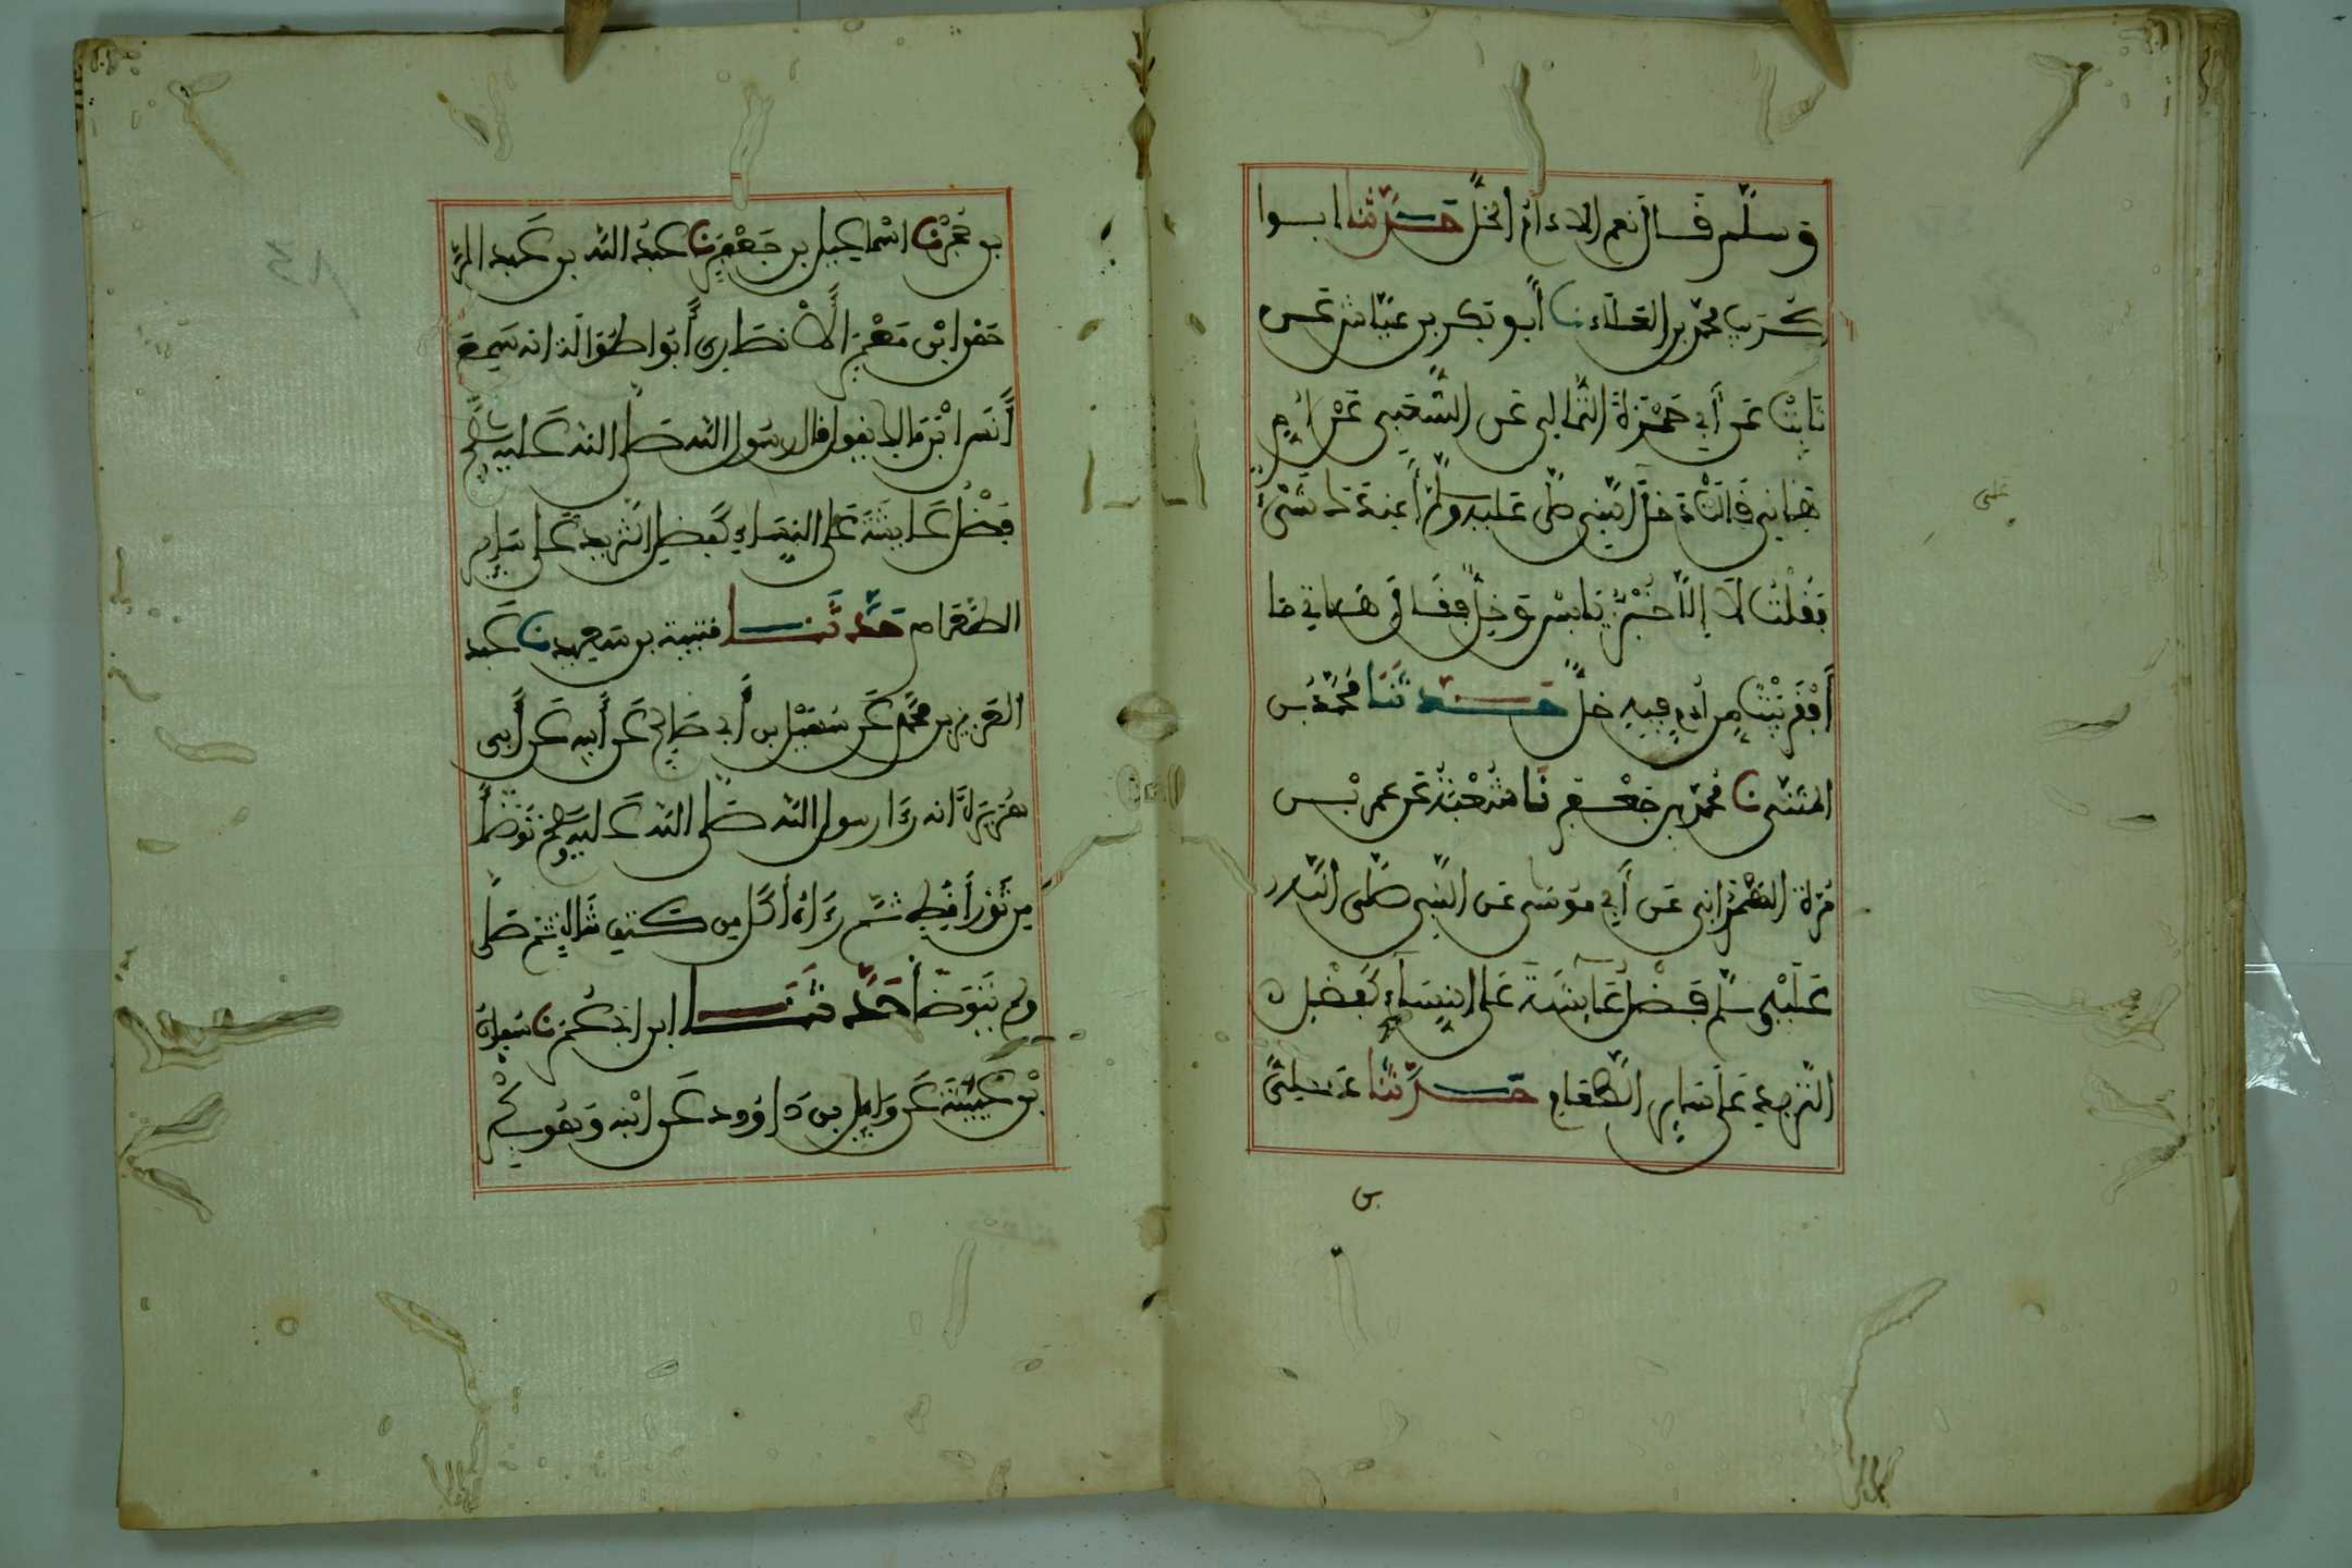 وسلم قال نعم الادام الخل حدثنا ابوا
كريب محمد بن العلاء نا أبو بكر بن عياش عن
ثابت عن أبي حمزة الثمالي عن الشعبي عن ام
هانى قالت دخل النبي صلى عليه وسلم أعندك شىء
فقلت لا إلا خبز يابس وخل فقال هاتي ما
أقفر بيت من ادم فيه خل حدثنا محمد بن
المثنى نا محمد بن جعفر نا شعبة عن عمر بن
مرة الهمداني عن أبي موسى عن النبي صلى الله
عليه وسلم فضل عايشة على النساء كفضل
الثريد على ساير الطعام حدثنا علي
بن
بن حجر نا اسماعيل بن جعفر نا عبد الله بن عبد الر
حمن ابن معمر الأنصاري أبوا طوالة انه سمع
أنس ابن مالك يقول قال رسول الله صلى الله عليه وسلم
فضل عايشة على النساء كفضل الثريد على ساير
الطعام حدثنا قتيبة بن سعيد نا عبد
العزيز بن محمد عن سهيل بن أبي صالح عن أبيه عن أبي
هريرة انه رءا رسول الله صلى الله عليه وسلم توضأ
من ثور أقط ثم رءاه أكل من كتف شاة ثم صلى
ولم يتوضأ حدثنا ابن ابي عمر نا سفيان
بن عيينة عن وايل بن داوود عن ابنه وهو بكر